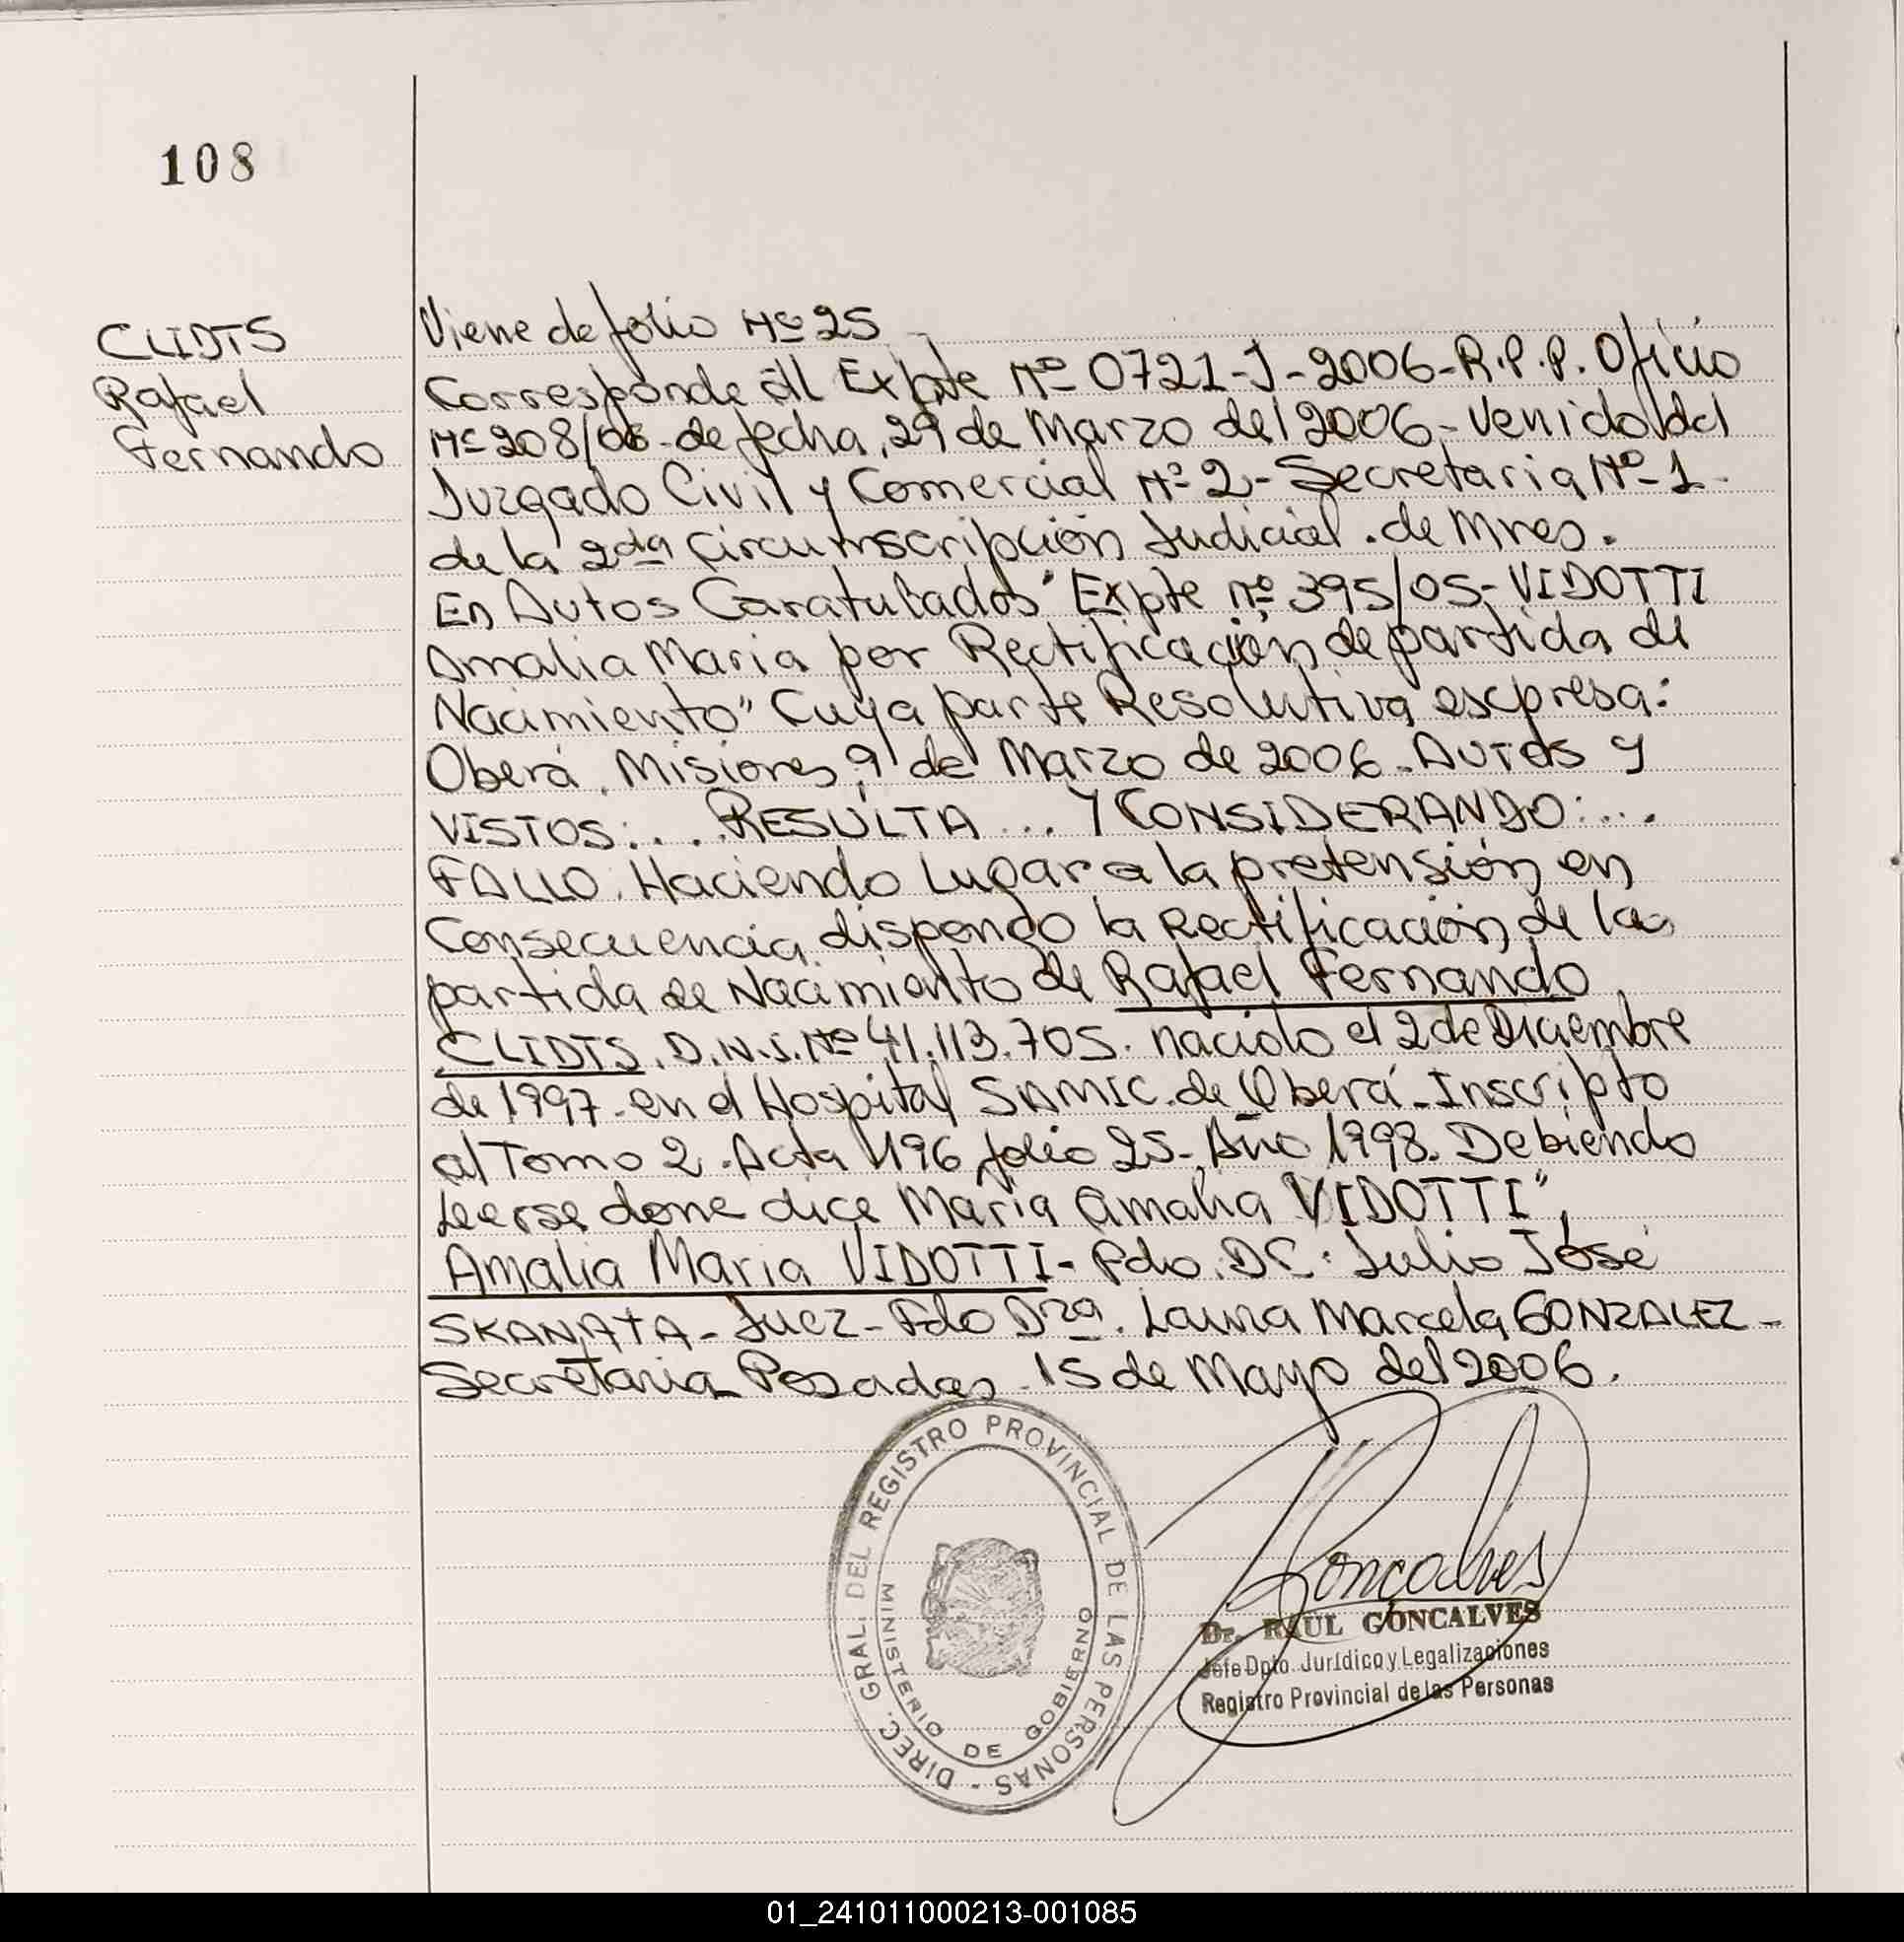 108
CLIDTS
Rafael
Fernando
Viene de folio Nº 25
Corresponde al Expte Nº 0721-J-2006-R.P.P. Oficio
Nº 208/06 de fecha, 29 de Marzo del 2006.- Venido del
Juzgado Civil y Comercial Nº 2- Secretaria Nº 1.
de la 2da Circumscripción Judicial. de Mnes.
En Autos Caratulados "Expte nº 395/05- VIDOTTI
Amalia Maria por Rectificación de partida de
Nacimiento" Cuya parte Resolutiva escpresa:
Oberá, Misiones, 9 de Marzo de 2006. AUTOS Y
VISTOS:... RESULTA ... Y CONSIDERANDO:...
FALLO: Haciendo Lugar a la pretensión en
Consecuencia dispongo la Rectificación de la
partida de Nacimiento de Rafael Fernando
CLIDTS. D.N.I. Nº 41.113.705. nacido el 2 de Diciembre
de 1997. en el Hospital SAMIC. de Oberá. Inscripto
al Tomo 2. Acta 496 folio 25. Año 1998. Debiendo
Leerse done dice Maria Amalia VIDOTTI",
Amalia Maria VIDOTTI- Fdo. DR: Julio José
SKANATA- Juez- Fdo Dra. Laura Marcela GONZALEZ-
Secretaria Posadas 15 de Mayo del 2006.
DIREC. GRAL. DEL REGISTRO PROVINCIAL DE LAS PERSONAS -
MINISTERIO DE GOBIERNO
Goncalves
Dr. RAUL GONCALVES
Jefe Dpto. Jurídico y Legalizaciones
Registro Provincial de las Personas
01_241011000213-001085